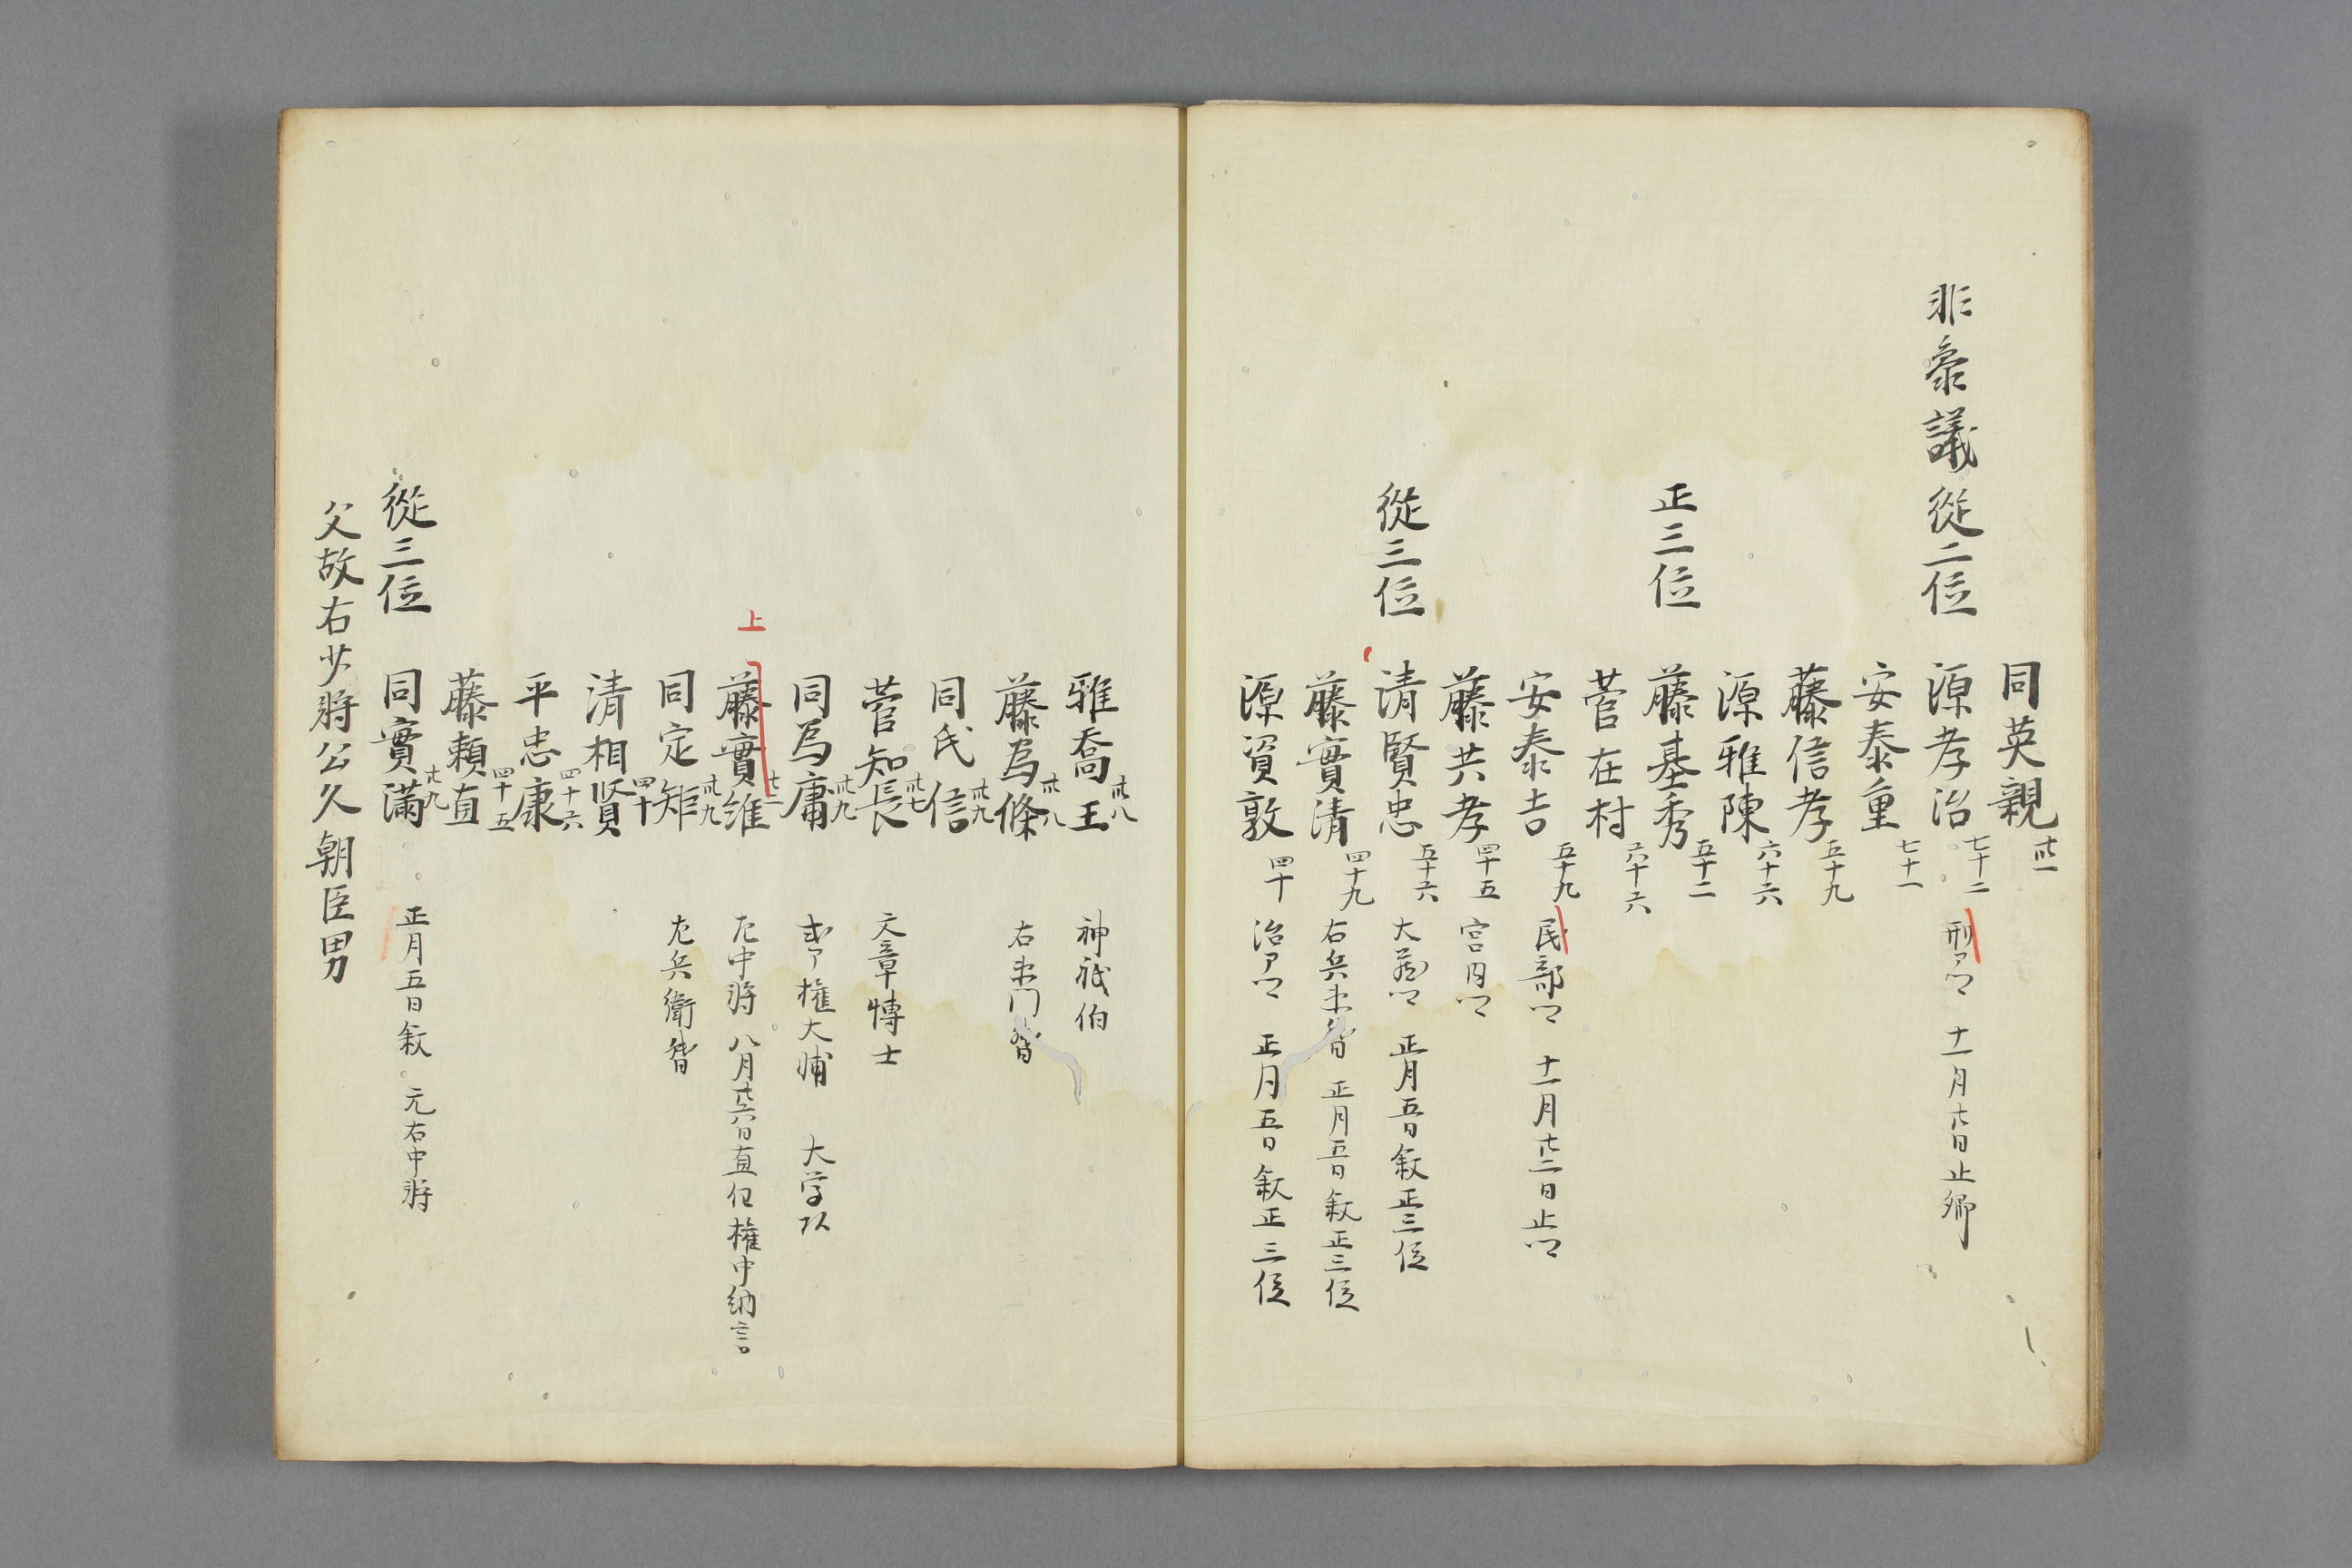 同英親 卅一
非參議 從二位 源孝治 七十二 刑ア卩 十一月廿日止卿
安泰重 七十一
藤信孝 五十九
源雅陳 六十六
正三位 藤基秀 五十二
菅在村 六十六
安泰吉 五十九 民部卩 十一月廿二日止卩
藤共孝 四十五 宮内卩
從三位 清賢忠 五十六 大蔵卩 正月五日叙正三位
藤實清 四十九 右兵衛督 正月五日叙正三位
源資敦 四十 治ア卩 正月五日叙正三位
雅喬王 卅八 神祇伯
藤爲條 卅八 右衛門督
同氏信 卅九
菅知長 卅七 文章博士
同爲庸 卅九 式ア權大輔 大学頭
上 藤實維 廿二 左中将 八月廿六日直任權中納言
同定矩 卅九 左兵衛督
清相賢 四十
平忠康 四十六
藤頼直 四十五
從三位 同實滿 廿九 正月五日叙 元右中将
父故右少將公久朝臣男